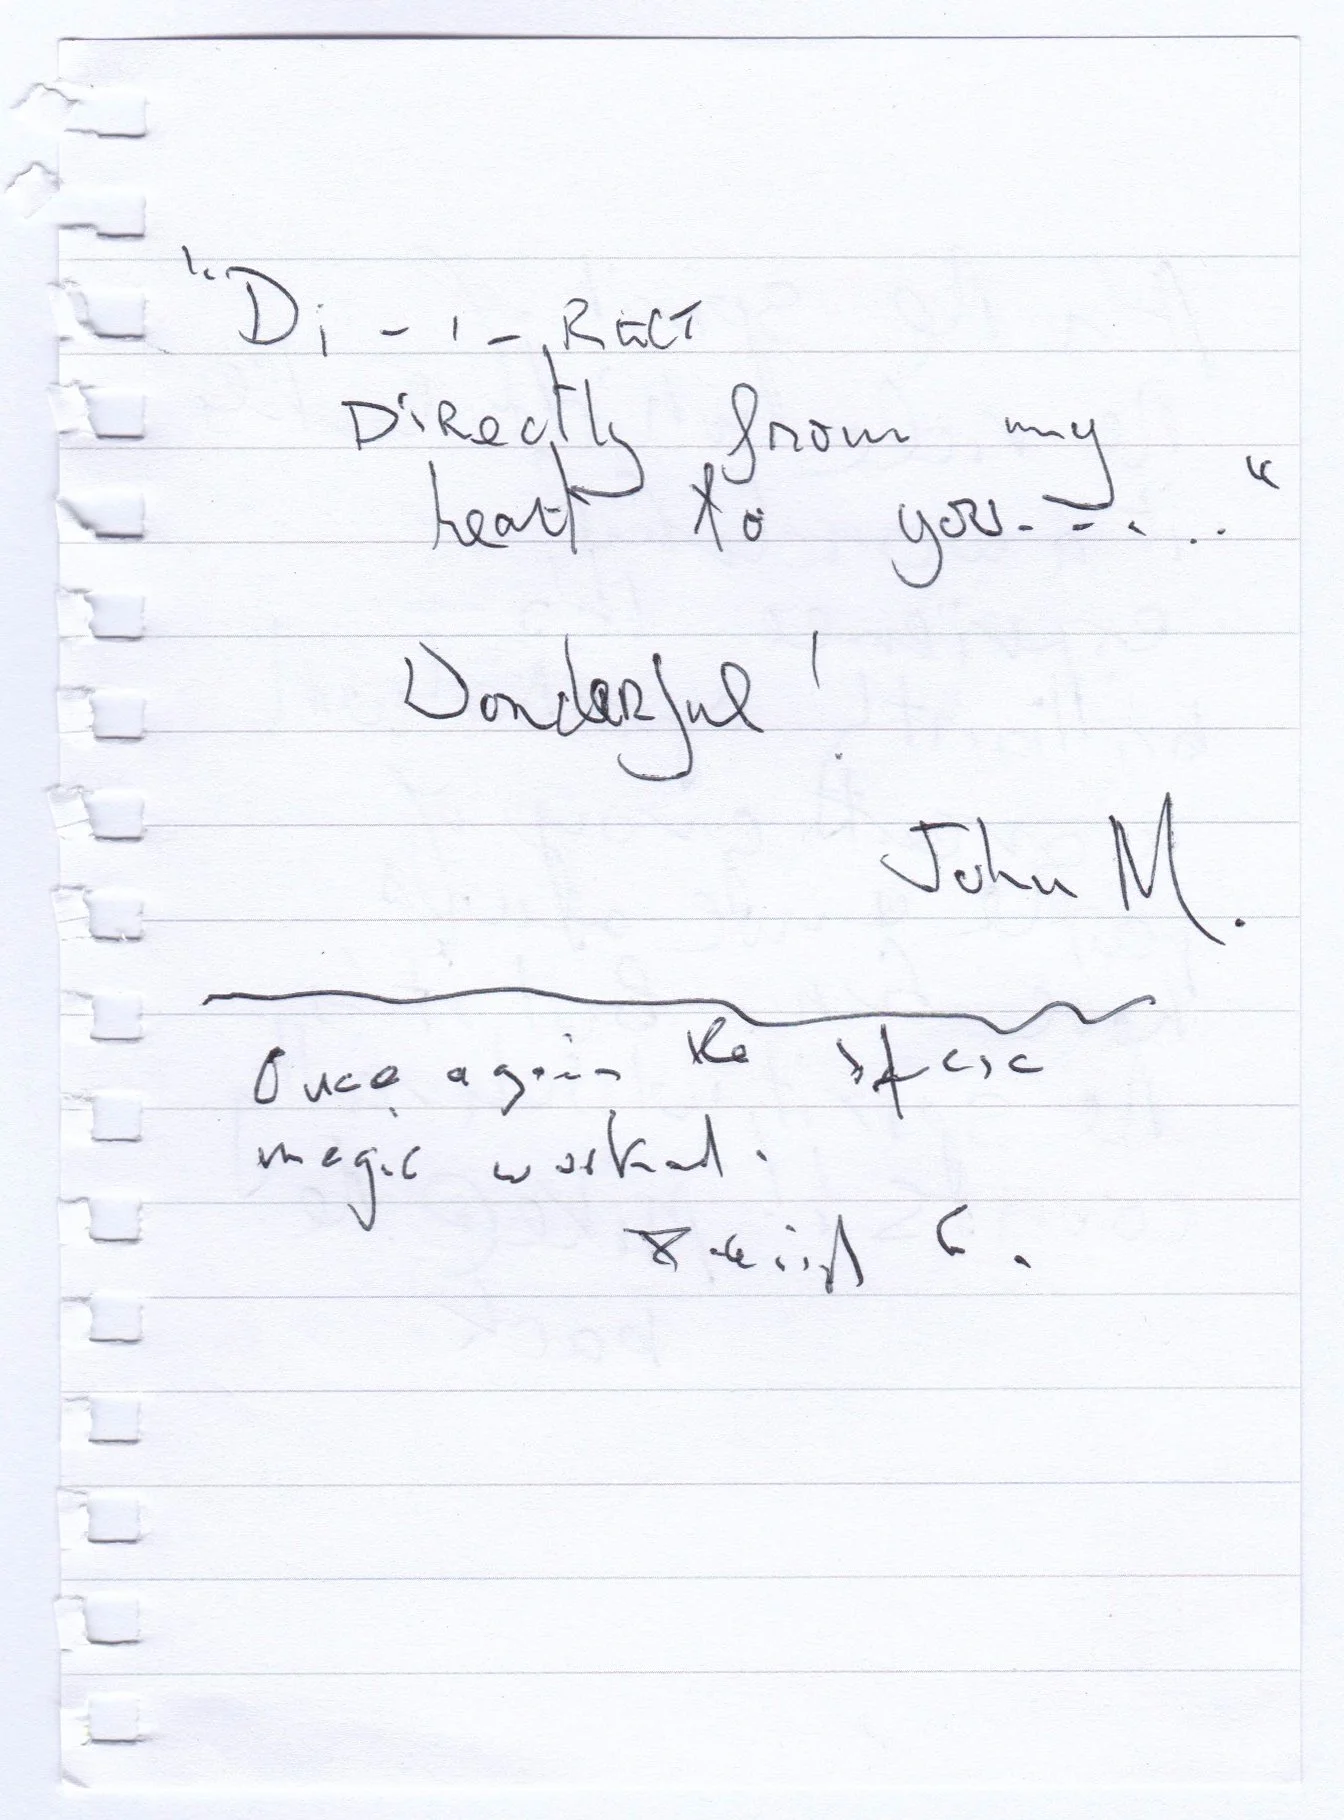 "Di - ' - RECT
DiRectly from my
heart to you - - - . . "
Wonderful !
John M.
Once again the
magic worked.